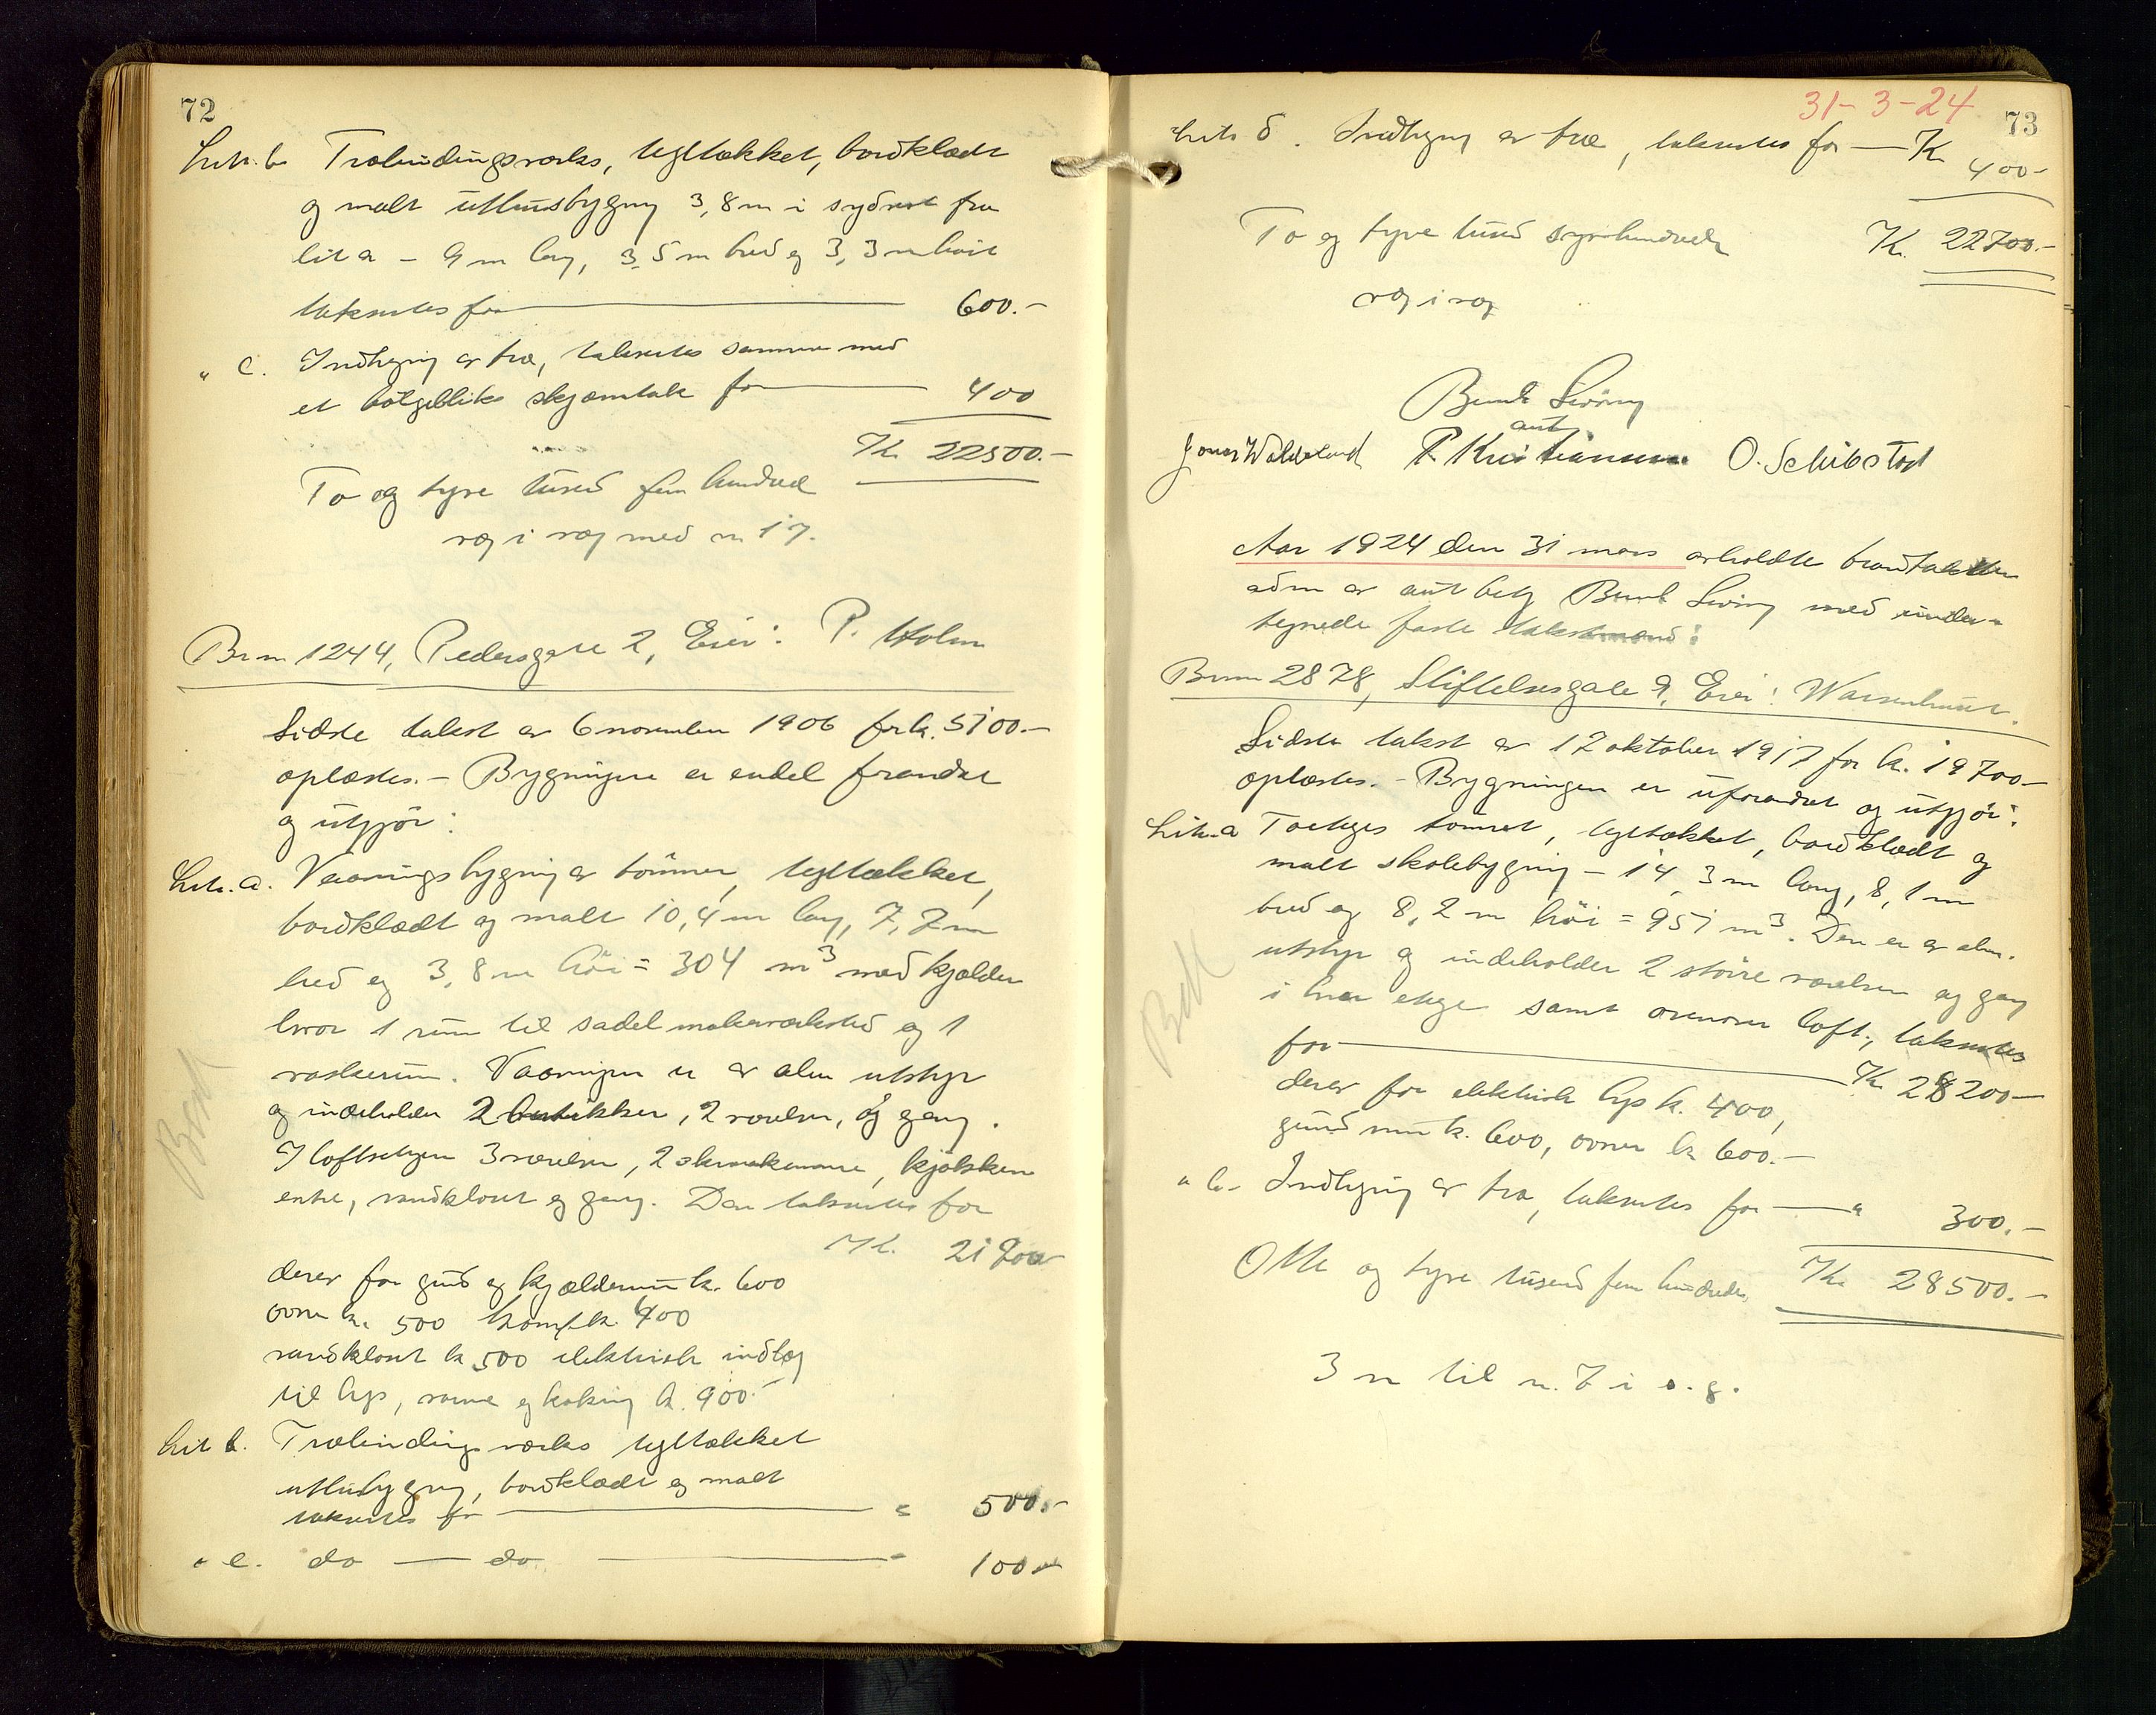 72
Litr. b. Træbindingsverks, tegltækket, bordklædt
og malt uthusbygning 3,8 m i sydvest fra
lit a - 9 m lang, 3,5 m bred og 3,3 m høit
takseres for 600.-
" c. Indhegning av træ, takseres sammen med
et skjæmtak for 400
Kr. 22500.-
To og tyve tused fem hundred
væg i væg med nr 17.
Br nr 1244, Pedersgate 2, Eier: P. Holm
Sidste takst av 6 november 1906 for kr. 5100.-
oplæstes. - Bygningene er endel forandret
og utgjør:
Litr. a. Vaaningsbygning av tømmer, tegltækket,
bordklædt og malt 10,4 m lang, 7,7 m
bred og 3,8 m høi = 304 m³ med kjelder
hvor 1 rum til sadelmakerverksted og 1
vaskerum. Vaaningen er av alm utstyr
og indeholder 2 butikker, 2 værelser, og gang.
I loftsetagen 3 værelser, 2 skraakamre, kjøkken
entre, vandklosset og gang. Den takseres for
Kr. 21700
derav for grund og kjælderrum kr. 600
ovne kr. 500 komf. kr. 400
vandklosset kr 500 elektrisk indlæg
til lys, varme og koking kr. 900.-
Brdt
Lit b. Træbindingsverks tegltækket
uthusbygning, bordklædt og malt
takseres for " 500.-
" c. do — do " 100.-
31-3-24
73
Litr d. Indhegning av træ, takseres for — Kr. 400.-
To og tyve tused syvhundrede Kr. 22700.-
væg i væg
Bernh Siving
aut
Jonas Waldeland P. Kristiansen O. Schibsted
Aar 1924 den 31 mars avholdte branntakster
adm av aut bety Bernh Siving med under-
tegnede faste takstmænd:
Br nr 2878, Stiftelsesgate 9, Eier: Waisenhuset.
Sidste takst av 12 oktober 1917 for kr. 19700.-
oplæstes. - Bygningen er uforandret og utgjør:
Litr. a Toetages tømret, tegltækket, bordklædt og
malt skolebygning - 14,3 m lang, 8,1 m
bred og 8,2 m høi = 951 m³. Den er av alm.
utstyr og indeholder 2 større værelser og gang
i hver etage samt ovenover loft, takseres
for Kr. 28200.-
derav for elektrisk lys kr. 400,
grundmur kr. 600, ovner kr 600.-
Brdt
" b. Indhegning av træ, takseres for — " 300.-
Otte og tyve tusend fem hundrede Kr. 28500.-
3 m til nr. 7 i s. g.